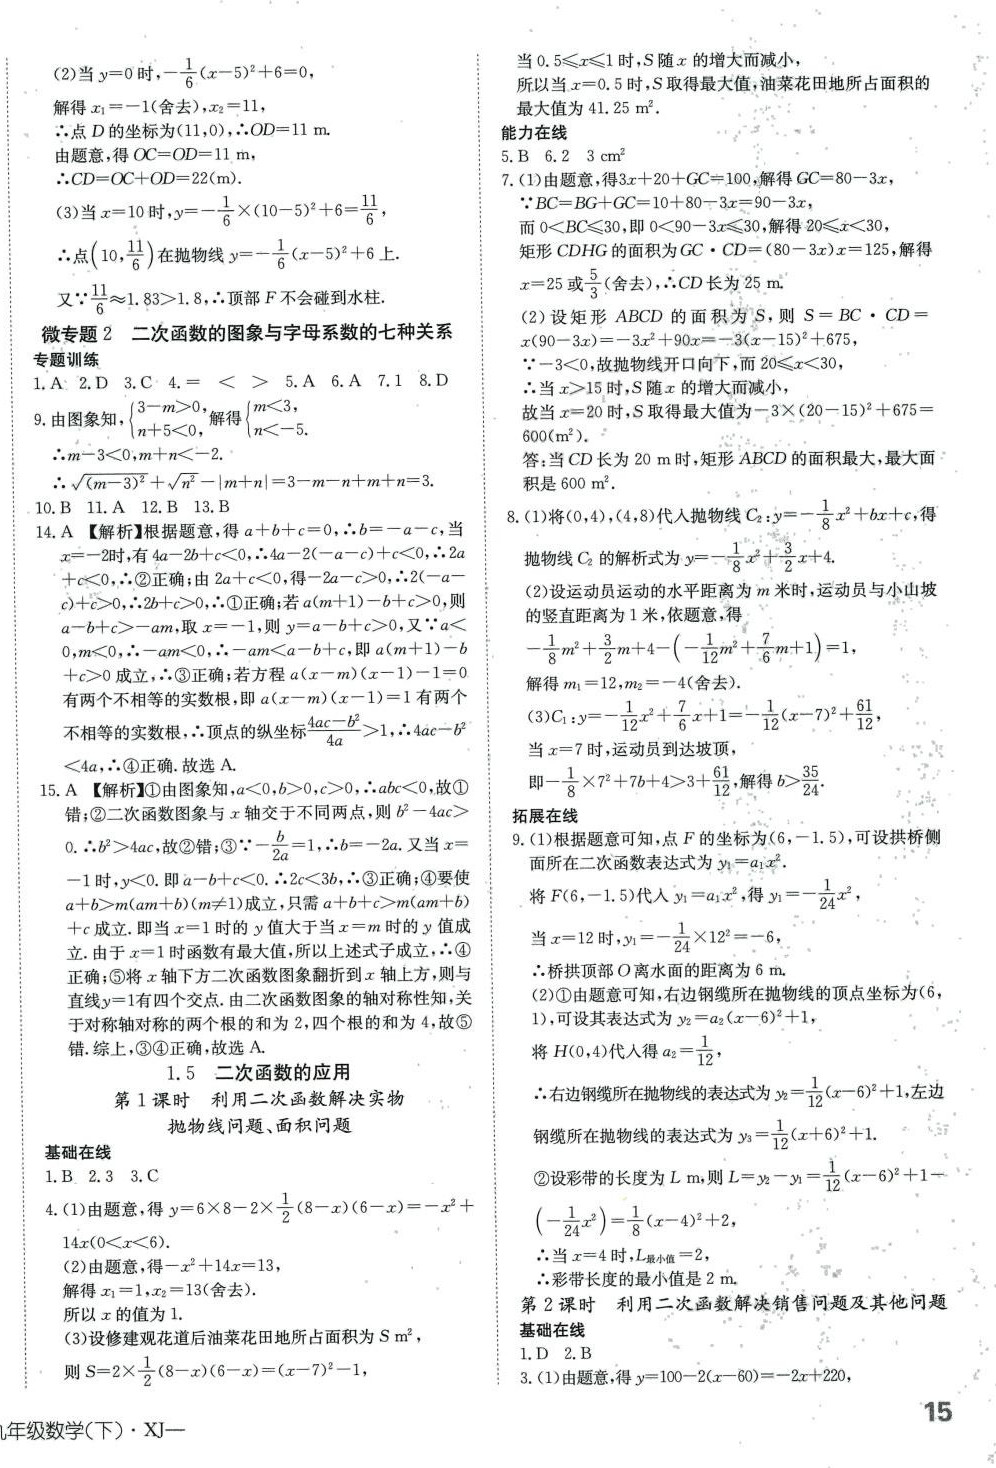 (2)当 y=0 时,-1/6(x-5)²+6=0,
解得 x₁=-1(舍去),x₂=11,
∴点 D 的坐标为(11,0),∴OD=11 m.
由题意,得 OC=OD=11 m,
∴CD=OC+OD=22(m).
(3)当 x=10 时,y=-1/6×(10-5)²+6=11/6,
∴点(10,11/6)在抛物线 y=-1/6(x-5)²+6 上.
又∵11/6≈1.83>1.8,∴顶部 F 不会碰到水柱.
微专题 2 二次函数的图象与字母系数的七种关系
专题训练
1.A 2.D 3.C 4.= < > 5.A 6.A 7.1 8.D
9.由图象知,{3-m>0,n+5<0,解得{m<3,n<-5.
∴m-3<0,m+n<-2.
∴√(m-3)²+√n²-|m+n|=3-m-n+m+n=3.
10.B 11.A 12.B 13.B
14.A 【解析】根据题意,得 a+b+c=0,∴b=-a-c,当
x=-2时,有 4a-2b+c<0,∴4a-2(-a-c)+c<0,∴2a
+c<0,∴②正确;由 2a+c<0,得-2a-c>0,∴2(-a-
c)+c>0,∴2b+c>0,∴①正确;若 a(m+1)-b+c>0,则
a-b+c>-am,取 x=-1,则 y=a-b+c>0,又∵a<
0,m<0,∴-am<0,∴-am<a-b+c,即 a(m+1)-b
+c>0 成立,∴③正确;若方程 a(x-m)(x-1)-1=0
有两个不相等的实数根,即 a(x-m)(x-1)=1 有两个
不相等的实数根,∴顶点的纵坐标(4ac-b²)/4a>1,∴4ac-b²
<4a,∴④正确.故选 A.
15.A 【解析】①由图象知,a<0,b>0,c>0,∴abc<0,故①
错;②二次函数图象与 x 轴交于不同两点,则 b²-4ac>
0.∴b²>4ac,故②错;③∵-b/2a=1,∴b=-2a.又当 x=
-1 时,y<0.即 a-b+c<0.∴2c<3b,∴③正确;④要使
a+b>m(am+b)(m≠1)成立,只需 a+b+c>m(am+b)
+c 成立.即当 x=1 时的 y 值大于当 x=m 时的 y 值成
立.由于 x=1 时函数有最大值,所以上述式子成立,∴④
正确;⑤将 x 轴下方二次函数图象翻折到 x 轴上方,则与
直线y=1有四个交点.由二次函数图象的轴对称性知,关
于对称轴对称的两个根的和为 2,四个根的和为 4,故⑤
错.综上,③④正确,故选 A.
1.5 二次函数的应用
第 1 课时 利用二次函数解决实物
抛物线问题、面积问题
基础在线
1.B 2.3 3.C
4.(1)由题意,得 y=6×8-2×1/2(8-x)(6-x)=-x²+
14x(0<x<6).
(2)由题意,得-x²+14x=13,
解得 x₁=1,x₂=13(舍去).
所以 x 的值为 1.
(3)设修建观花道后油菜花田地所占面积为 S m²,
则 S=2×1/2(8-x)(6-x)=(x-7)²-1,
九年级数学(下)·XJ—
当 0.5≤x≤1 时,S 随 x 的增大而减小,
所以当 x=0.5 时,S 取得最大值,油菜花田地所占面积的
最大值为 41.25 m².
能力在线
5.B 6.2 3 cm²
7.(1)由题意,得3x+20+GC=100,解得 GC=80-3x,
∵BC=BG+GC=10+80-3x=90-3x,
而 0<BC≤30,即 0<90-3x≤30,解得 20≤x<30,
矩形 CDHG 的面积为 GC·CD=(80-3x)x=125,解得
x=25 或5/3(舍去),∴CD 长为 25 m.
(2)设矩形 ABCD 的面积为 S,则 S=BC·CD=
x(90-3x)=-3x²+90x=-3(x-15)²+675,
∵-3<0,故抛物线开口向下,而 20≤x<30,
∴当 x>15 时,S 随 x 的增大而减小,
故当 x=20 时,S 取得最大值为-3×(20-15)²+675=
600(m²).
答:当 CD 长为 20 m 时,矩形 ABCD 的面积最大,最大面
积是 600 m².
8.(1)将(0,4),(4,8)代入抛物线 C₂:y=-1/8x²+bx+c,得
抛物线 C₂ 的解析式为 y=-1/8x²+3/2x+4.
(2)设运动员运动的水平距离为 m 米时,运动员与小山坡
的竖直距离为 1 米,依题意,得
-1/8m²+3/2m+4-(-1/12m²+7/6m+1)=1,
解得 m₁=12,m₂=-4(舍去).
(3)C₁:y=-1/12x²+7/6x+1=-1/12(x-7)²+61/12,
当 x=7 时,运动员到达坡顶,
即-1/8×7²+7b+4>3+61/12,解得 b>35/24.
拓展在线
9.(1)根据题意可知,点 F 的坐标为(6,-1.5),可设拱桥侧
面所在二次函数表达式为 y₁=a₁x².
将 F(6,-1.5)代入 y₁=a₁x²,得 y₁=-1/24x²,
当 x=12 时,y₁=-1/24×12²=-6,
∴桥拱顶部 O 离水面的距离为 6 m.
(2)①由题意可知,右边钢缆所在抛物线的顶点坐标为(6,
1),可设其表达式为 y₂=a₂(x-6)²+1,
将 H(0,4)代入得 a₂=1/12,
∴右边钢缆所在抛物线的表达式为 y₂=1/12(x-6)²+1,左边
钢缆所在抛物线的表达式为 y₃=1/12(x+6)²+1.
②设彩带的长度为 L m,则 L=y₂-y₁=1/12(x-6)²+1-
(-1/24x²)=1/8(x-4)²+2,
∴当 x=4 时,L最小值=2,
∴彩带长度的最小值是 2 m.
第 2 课时 利用二次函数解决销售问题及其他问题
基础在线
1.D 2.B
3.(1)由题意,得 y=100-2(x-60)=-2x+220,
15